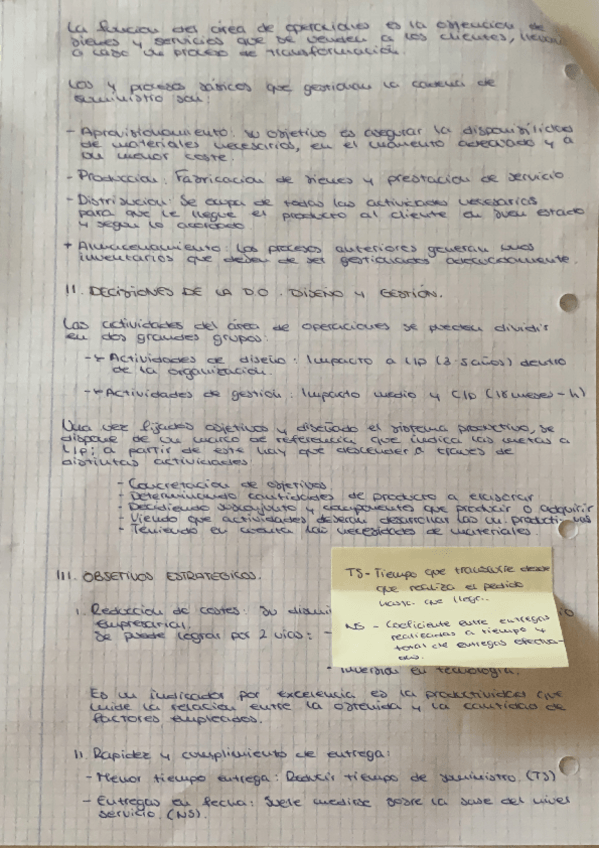 La función del área de operaciones es la obtención de
bienes y servicios que se venden a los clientes, llevan
a cabo un proceso de transformación.
Los 4 procesos básicos que gestionan la cadena de
suministro son:
- Aprovisionamiento: su objetivo es asegurar la disponibilidad
de materiales necesarios, en el momento adecuado y a
su menor coste.
- Producción: Fabricación de bienes y prestación de servicio
- Distribución: Se ocupa de todas las actividades necesarias
para que le llegue el producto al cliente en buen estado
y según lo acordado.
+ Almacenamiento: Los procesos anteriores generan unos
inventarios que deben de ser gestionados adecuadamente.
II. DECISIONES DE LA D.O. DISEÑO Y GESTIÓN.
Las actividades del área de operaciones se pueden dividir
en dos grandes grupos:
-+ Actividades de diseño: Impacto a L/P (3-5 años) dentro
de la organización.
-+ Actividades de gestión: Impacto medio y C/P (18 meses-h)
Una vez fijados objetivos y diseñado el sistema productivo, se
dispone de un marco de referencia que indica las metas a
L/P; a partir de este hay que descender a traves de
distintas actividades
- Concretación de objetivos
- Determinando cantidades de producto a elaborar
- Decidiendo subconjunto y componentes que producir o adquirir
- Viendo que actividades deberán desarrollar las un. productivas
- Teniendo en cuenta las necesidades de materiales.
III. OBJETIVOS ESTRATEGICOS.
TS - Tiempo que transcurre desde
que realiza el pedido
hasta que llega..
NS - Coeficiente entre entregas
realizadas a tiempo y
total de entregas efectua-
das.
I. Reducción de costes: Su
empresarial.
Se puede lograr por 2 vias: -
- Inversión en tecnología.
Es un indicador por excelencia es la productividad que
mide la relación entre la obtenida y la cantidad de
factores empleados.
II. Rapidez y cumplimiento de entrega:
- Menor tiempo entrega: Reducir tiempo de suministro. (TS)
- Entregas en fecha: Suele medirse sobre la base del nivel
servicio. (NS).